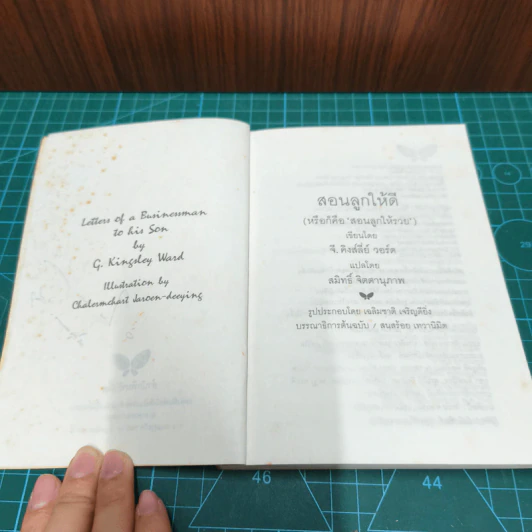 Letters of a Businessman
to his Son
by
G. Kingsley Ward
Illustration by
Chalermchart Jaroen-deeying
สอนลูกให้ดี
(หรือก็คือ "สอนลูกให้รวย")
เขียนโดย
จี. คิงส์ลี่ย์ วอร์ด
แปลโดย
สมิทธิ์ จิตตานุภาพ
รูปประกอบโดย เฉลิมชาติ เจริญดียิ่ง
บรรณาธิการต้นฉบับ / สนสร้อย เทวานิมิต
46
44